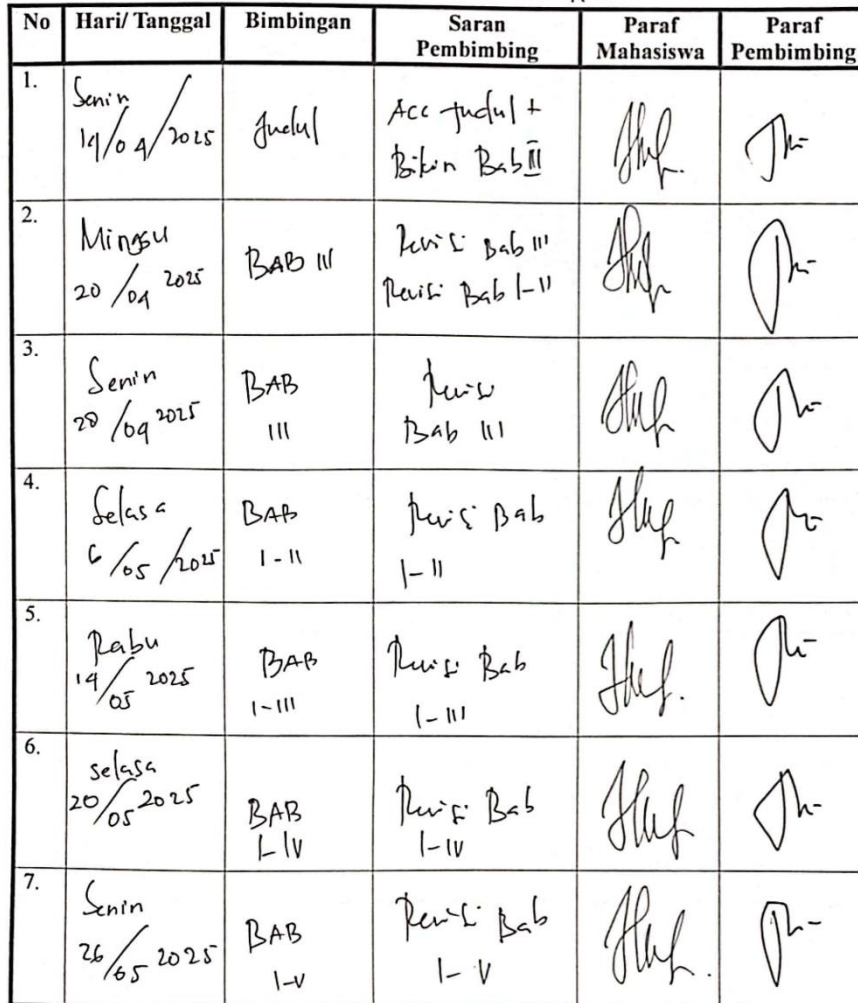 No Hari/ Tanggal Bimbingan Saran Pembimbing Paraf Mahasiswa Paraf Pembimbing
1. Senin 14/04/2025 Judul Acc Judul + Bikin Bab III
2. Minggu 20/04 2025 BAB III Revisi Bab III
Revisi Bab I-II
3. Senin 28/04 2025 BAB III Revisi Bab III
4. Selasa 6/05/2025 BAB I-II Revisi Bab I-II
5. Rabu 14/05 2025 BAB I-III Revisi Bab I-III
6. selasa 20/05 2025 BAB I-IV Revisi Bab I-IV
7. Senin 26/05 2025 BAB I-V Revisi Bab I-V